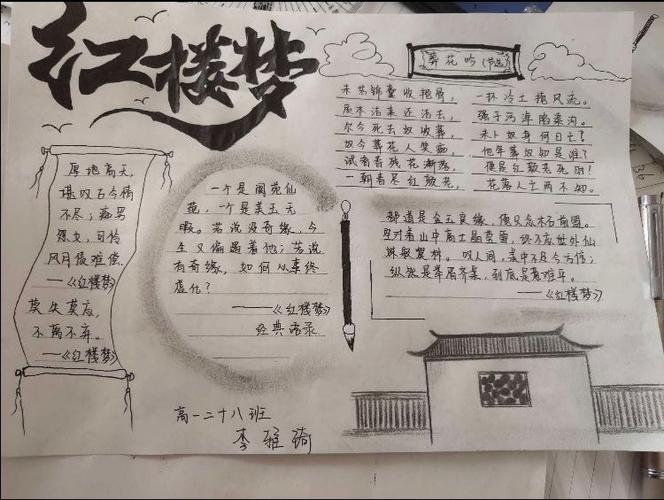 红楼梦
厚地高天，
堪叹古今情
不尽；痴男
怨女，可怜
风月债难偿。
——《红楼梦》
莫失莫忘，
不离不弃。
——《红楼梦》
一个是阆苑仙
葩，一个是美玉无
瑕。若说没奇缘，今
生又偏遇着他；若说
有奇缘，如何心事终
虚化？
——《红楼梦》
经典语录
葬花吟（节选）
未若锦囊收艳骨，
质本洁来还洁去，
尔今死去侬收葬，
侬今葬花人笑痴，
试看春残花渐落，
一朝春尽红颜老，
一抔冷土掩风流。
强于污淖陷渠沟。
未卜侬身何日亡？
他年葬侬知是谁？
便是红颜老死时！
花落人亡两不知。
都道是金玉良缘，俺只念木石前盟。
空对着山中高士晶莹雪，终不忘世外仙
姝寂寞林。叹人间，美中不足今方信；
纵然是举眉齐案，到底是意难平。
——《红楼梦》
高一二十八班
李雅琦